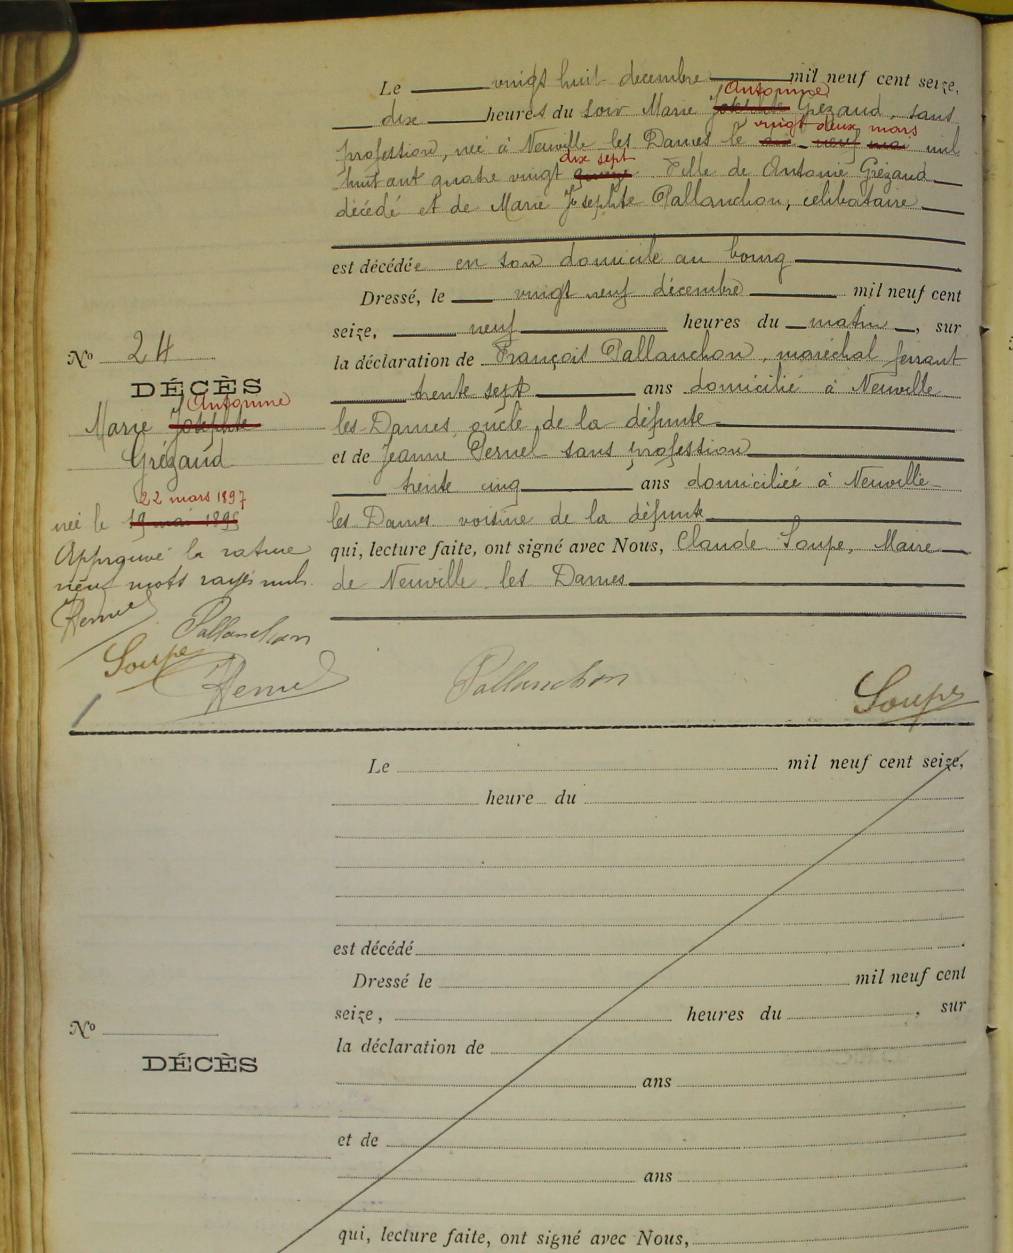 Le vingt huit décembre mil neuf cent seize,
dix heures du soir Marie Josephte Antonine Grézaud, sans
profession, née à Neuville les Dames le dix neuf mai vingt deux mars mil
huit cent quatre vingt quinze dix sept Fille de Antonie Grézaud
décédé et de Marie Josephte Pallanchon, célibataire
est décédée en son domicile au bourg
Dressé, le vingt neuf décembre mil neuf cent
seize, neuf heures du matin, sur
la déclaration de François Pallanchon, maréchal ferrant
trente sept ans domicilié à Neuville
les Dames oncle de la défunte
et de Jeanne Pernel sans profession
trente cinq ans domiciliée à Neuville
les Dames voisine de la défunte
qui, lecture faite, ont signé avec Nous, Claude Soupe, Maire
de Neuville les Dames
Nº 24
DÉCÈS
Marie Josephte Antonine
Grézaud
22 mars 1897
née le 19 mai 1895
Approuvé la rature
neuf mots rayés nuls.
Pernel
Pallanchon
Soupe
Pernel
Pallanchon
Soupe
Le mil neuf cent seize,
heure du
est décédé
Dressé le mil neuf cent
seize, heures du , sur
la déclaration de
ans
et de
ans
qui, lecture faite, ont signé avec Nous,
Nº
DÉCÈS